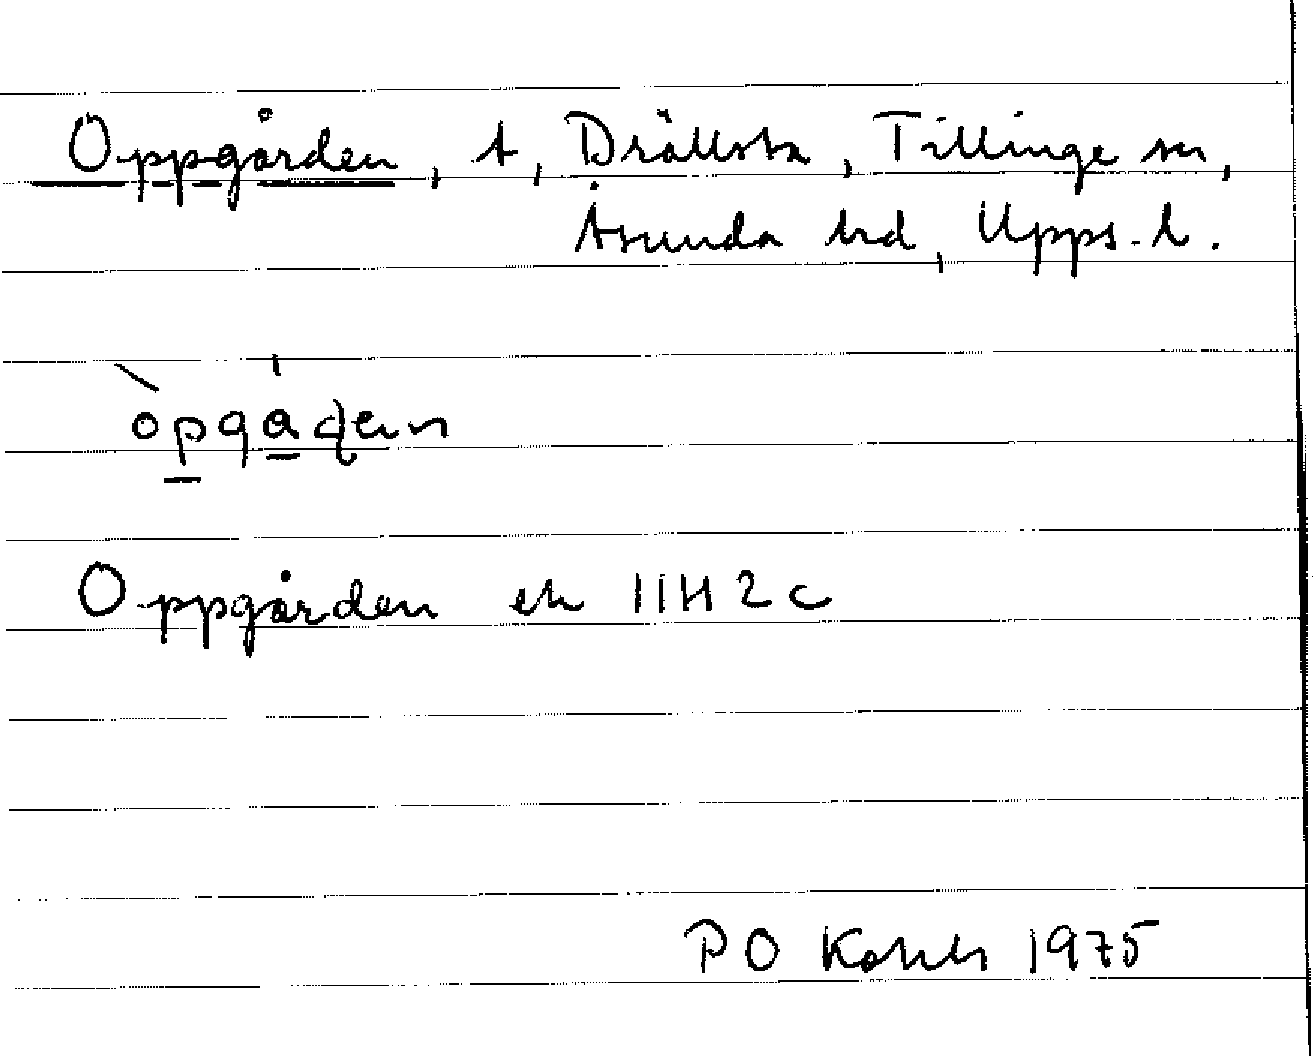 Oppgården, t, Drällsta, Tillinge sn,
Åsunda hd, Upps. l.
Oppgården ek 11H 2c
P O 1975